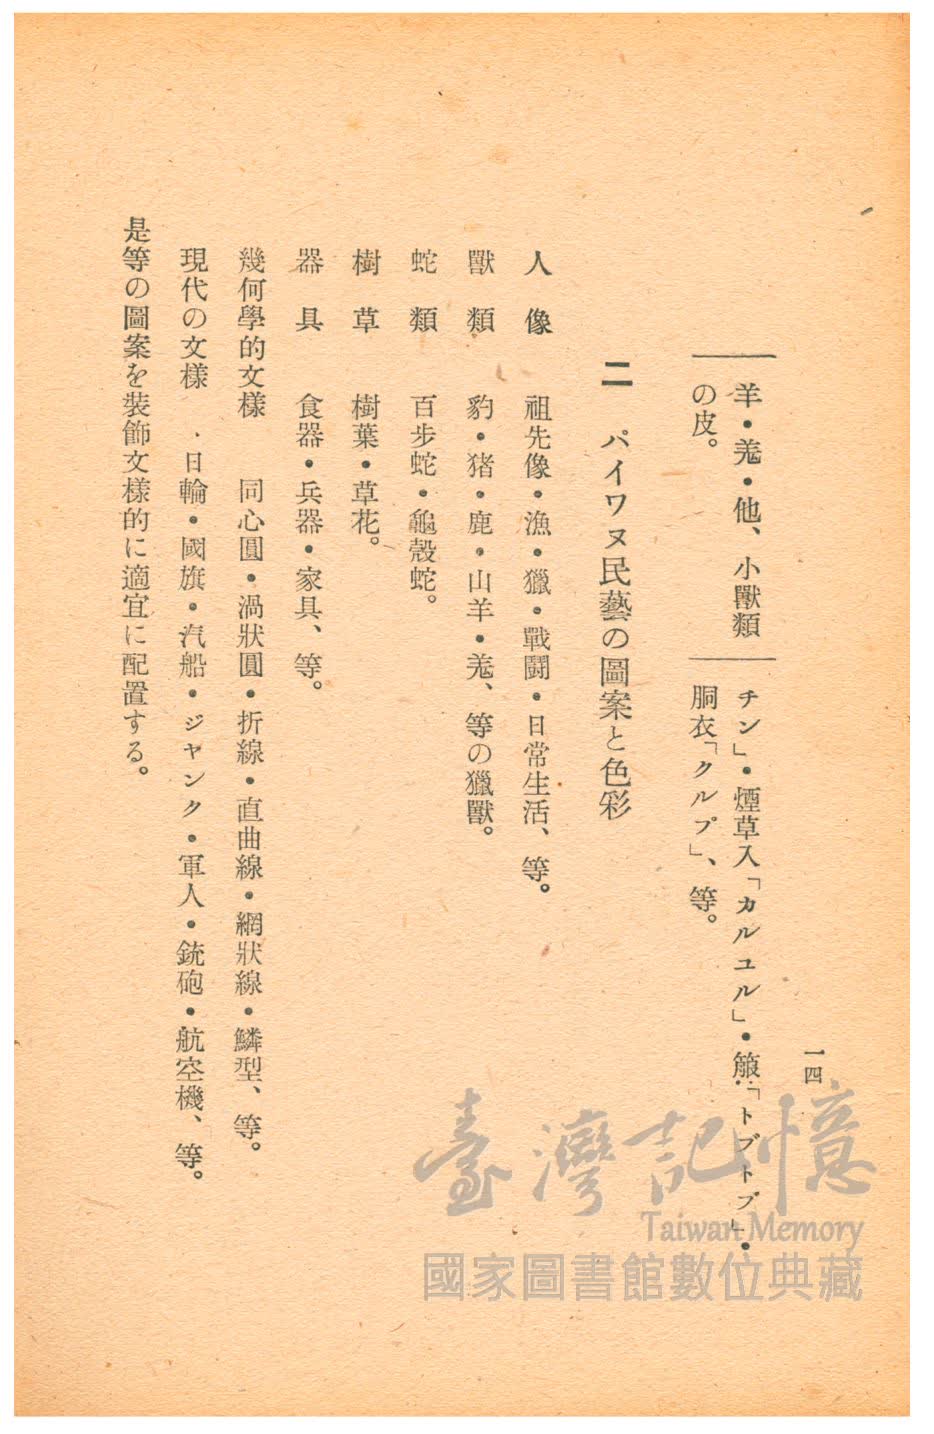 一四
羊・羗・他、小獸類
の皮。
チン」・煙草入「カルユル」・箙「トブトブ」・
胴衣「クルプ」、等。
二 パイワヌ民藝の圖案と色彩
人像 祖先像・漁・獵・戰鬪・日常生活、等。
獸類 豹・猪・鹿・山羊・羗、等の獵獸。
蛇類 百步蛇・龜殼蛇。
樹草 樹葉・草花。
器具 食器・兵器・家具、等。
幾何學的文樣 同心圓・渦狀圓・折線・直曲線・網狀線・鱗型、等。
現代の文樣・日輪・國旗・汽船・ジャンク・軍人・銃砲・航空機、等。
是等の圖案を裝飾文樣的に適宜に配置する。
臺灣記憶
Taiwan Memory
國家圖書館數位典藏